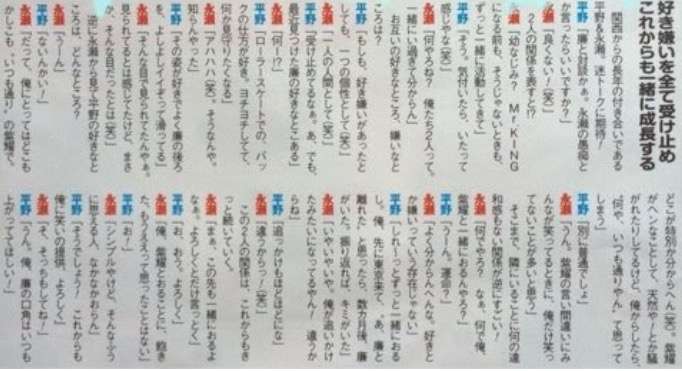 好き嫌いを全て受け止め
これからも一緒に成長する
関西からの長年の付き合いである
平野&永瀬、迷トークに期待!
平野「廉と対談かぁ。永瀬の愚痴と
か言ったらいいですか?」
永瀬「良くない!(笑)」
2人の関係を表すと!?
永瀬「幼なじみ? Mr.KING
になる前も、そうじゃないときも、
ずっと一緒に活動してきて」
平野「そう。気付いたら、いたって
感じやな(笑)」
永瀬「何やろね? 俺たち2人って。
一緒にい過ぎて分からん」
お互いの好きなところ、嫌いなと
ころは?
平野「もしも、好き嫌いがあったと
しても、一つの個性として(笑)」
永瀬「一人の人間として(笑)」
平野「受け止めてるなぁ。あ、でも、
最近見つけた廉の好きなとこある」
永瀬「何!?」
平野「ローラースケートでの、バッ
クの仕方が好き。ヨチヨチしてて、
何か見守りたくなる」
永瀬「アハハハ(笑)。そうなんや。
知らんやった」
平野「その姿が好きでよく廉の後ろ
を、よしよしイイぞって滑ってる」
永瀬「そんな目で見られてたんやぁ。
見られてるとは感じてたけど、まさ
か、そんな目だったとは(笑)」
逆に永瀬から見て平野の好きなと
ころは、どんなところ?
永瀬「うーん」
平野「ないんかい!」
永瀬「だって、俺にとってはどこも
かしこも、いつも通りの紫耀で。
どこが特別か分からへん(笑)。紫耀
がヘンなことして、天然やーとか騒
がれたりしてるけど、俺からしたら、
"何や、いつも通りやん"て思って
しまう」
平野「別に普通でしょ」
永瀬「うん。紫耀の言い間違いにみ
んなが笑ってるときに、俺だけ笑っ
てないことが多いと思う」
そこまで、隣にいることに何の違
和感もない関係が逆にすごい!
永瀬「何でやろ? なぁ、何で俺、
紫耀と一緒におるんやろ?」
平野「うーん。運命?」
永瀬「よく分からんへんな。好きと
か嫌いっていう存在じゃない」
平野「しれーっとずっと一緒におる
し。俺、先に東京来て、"あ、廉と
離れた"と思ったら、数カ月後、廉
がいた。振り返れば、キミがいた」
永瀬「いやいやいや。俺が追いかけ
たみたいになってるやん! 違うか
らね」
平野「追っかけもほどほどにな」
永瀬「違うからっ!(笑)」
この2人の関係は、これからもき
っと続いていく。
永瀬「まぁ、この先も一緒におるよ
なぁ。よろしくとだけ言っとく」
平野「お、おぅ。よろしく」
永瀬「俺、紫耀とおることに、飽き
た、もうええって思ったことはない」
平野「お!」
永瀬「シンプルやけど、そんなふう
に思える人、なかなかおらん」
平野「そうでしょう! これからも
俺に笑いの提供、よろしく」
永瀬「そ、そっちもしてね!」
平野「うん。俺、廉の口角はいつも
上がっててほしい!」